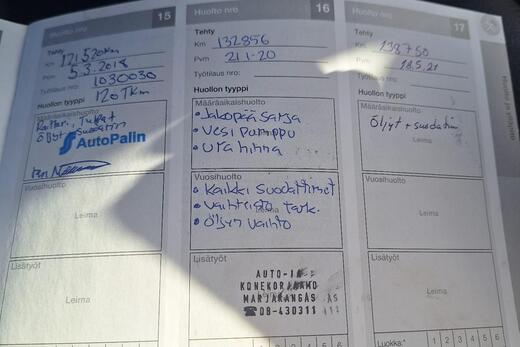 Huolto nro 15
Tehty
Km 121520km
Pvm 5.3.2018
Työtilaus nro: 1030030
Huollon tyyppi
120Tkm
Määräaikaishuolto
öljyt suodatin
AutoPalin
Vuosihuolto
Leima
Lisätyöt
Leima
Huolto nro 16
Tehty
Km 132856
Pvm 21.1-20
Työtilaus nro:
Huollon tyyppi
Määräaikaishuolto
• Jakopää sarja
• Vesi pumppu
• Urahihna
Vuosihuolto
• Kaikki suodattimet
• Vaihteisto tark.
Leima
• Öljyn vaihto
Lisätyöt
KONEKORJAAMO
MARJAKANGAS
☎08-430311
Huolto nro 17
Tehty
Km 138750
Pvm 18.5.21
Työtilaus nro:
Huollon tyyppi
Määräaikaishuolto
Öljyt + suodatin
Vuosihuolto
Leima
Lisätyöt
Leima
Luokka*